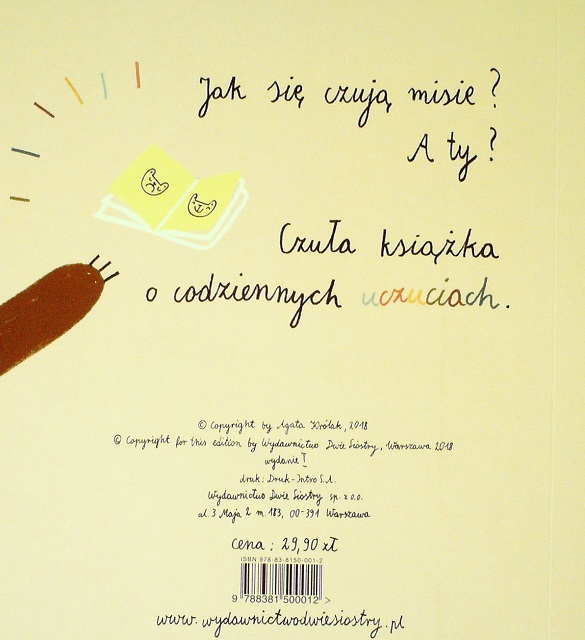 Jak się czują misie?
A ty?
Czuła książka
o codziennych uczuciach.
© Copyright by Agata Królak, 2018
© Copyright for this edition by Wydawnictwo Dwie Siostry, Warszawa 2018
wydanie I
druk: Druk-Intro S.A.
Wydawnictwo Dwie Siostry sp. z o.o.
al. 3 Maja 2 m. 183, 00-391 Warszawa
cena: 29,90 zł
ISBN 978-83-8150-001-2
9 788381 500012 >
www.wydawnictwodwiesiostry.pl